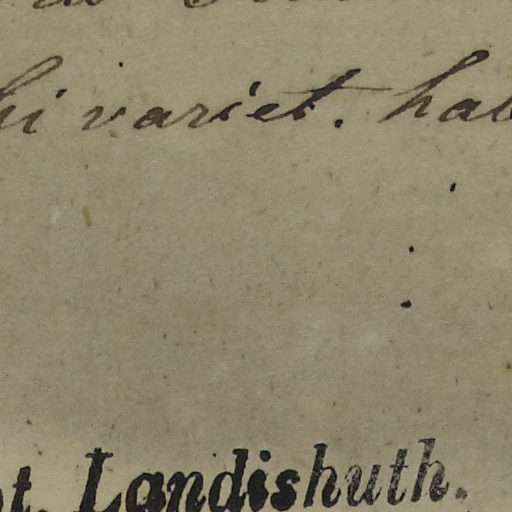 hi variet. hab
ot. Landishuth.